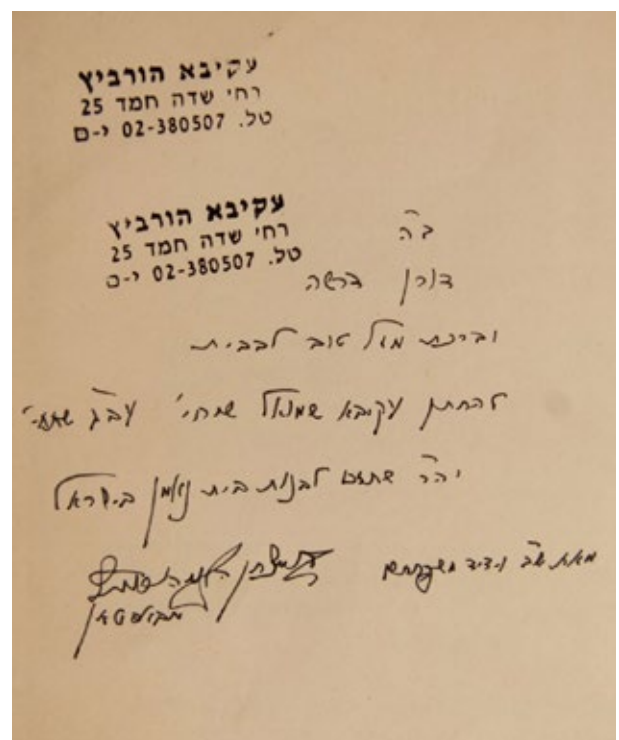 עקיבא הורביץ
רחי שדה חמד 25
טל. 02-380507 י-ם
עקיבא הורביץ
רחי שדה חמד 25
טל. 02-380507 י-ם
ב"ה
דורון דרשה
וברכת מזל טוב לבבית
להחתן עקיבא שמואל שיחי' עב"ג שתחי'
יה"ר שתזכו לבנות בית נאמן בישראל
מאת ש"ב וידיד